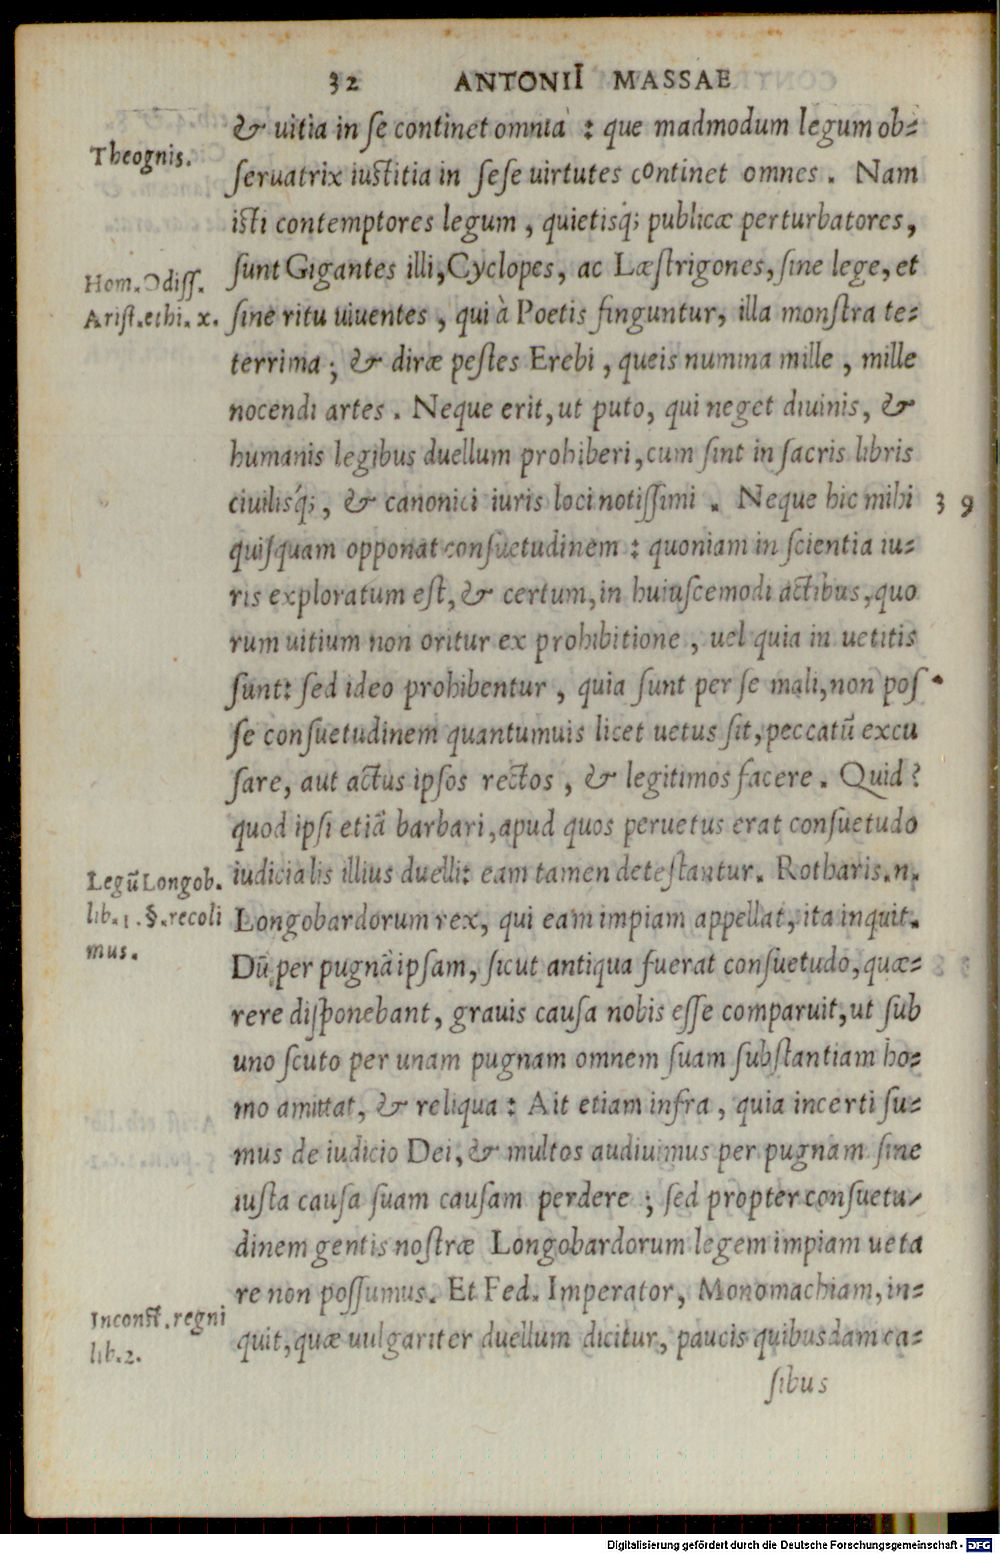 32 ANTONII MASSAE
& uitia in se continet omnia : que madmodum legum ob-
Theognis.
seruatrix iustitia in sese uirtutes continet omnes. Nam
isti contemptores legum, quietisq; publicæ perturbatores,
Hom. Odiss.
sunt Gigantes illi, Cyclopes, ac Læstrigones, sine lege, et
Arist. ethi. x.
sine ritu uiuentes, qui à Poetis finguntur, illa monstra te-
terrima; & diræ pestes Erebi, queis numina mille, mille
nocendi artes. Neque erit, ut puto, qui neget diuinis, &
humanis legibus duellum prohiberi, cum sint in sacris libris
ciuilisq;, & canonici iuris loci notissimi. Neque hic mihi
39
quisquam opponat consuetudinem : quoniam in scientia iu-
ris exploratum est, & certum, in huiuscemodi actibus, quo
rum uitium non oritur ex prohibitione, uel quia in uetitis
sunt: sed ideo prohibentur, quia sunt per se mali, non pos
se consuetudinem quantumuis licet uetus sit, peccatū excu
sare, aut actus ipsos rectos, & legitimos facere. Quid?
quod ipsi etiā barbari, apud quos peruetus erat consuetudo
Legū Longob.
lib. 1. §. recoli
mus.
iudicialis illius duelli: eam tamen detestantur. Rotharis.n.
Longobardorum rex, qui eam impiam appellat, ita inquit.
Dū per pugnā ipsam, sicut antiqua fuerat consuetudo, quæ-
rere disponebant, grauis causa nobis esse comparuit, ut sub
uno scuto per unam pugnam omnem suam substantiam ho-
mo amittat, & reliqua : Ait etiam infra, quia incerti su-
mus de iudicio Dei, & multos audiuimus per pugnam sine
iusta causa suam causam perdere ; sed propter consuetu-
dinem gentis nostræ Longobardorum legem impiam ueta
re non possumus. Et Fed. Imperator, Monomachiam, in-
Inconst. regni
lib. 2.
quit, quæ uulgariter duellum dicitur, paucis quibusdam ca-
sibus
Digitalisierung gefördert durch die Deutsche Forschungsgemeinschaft - DFG